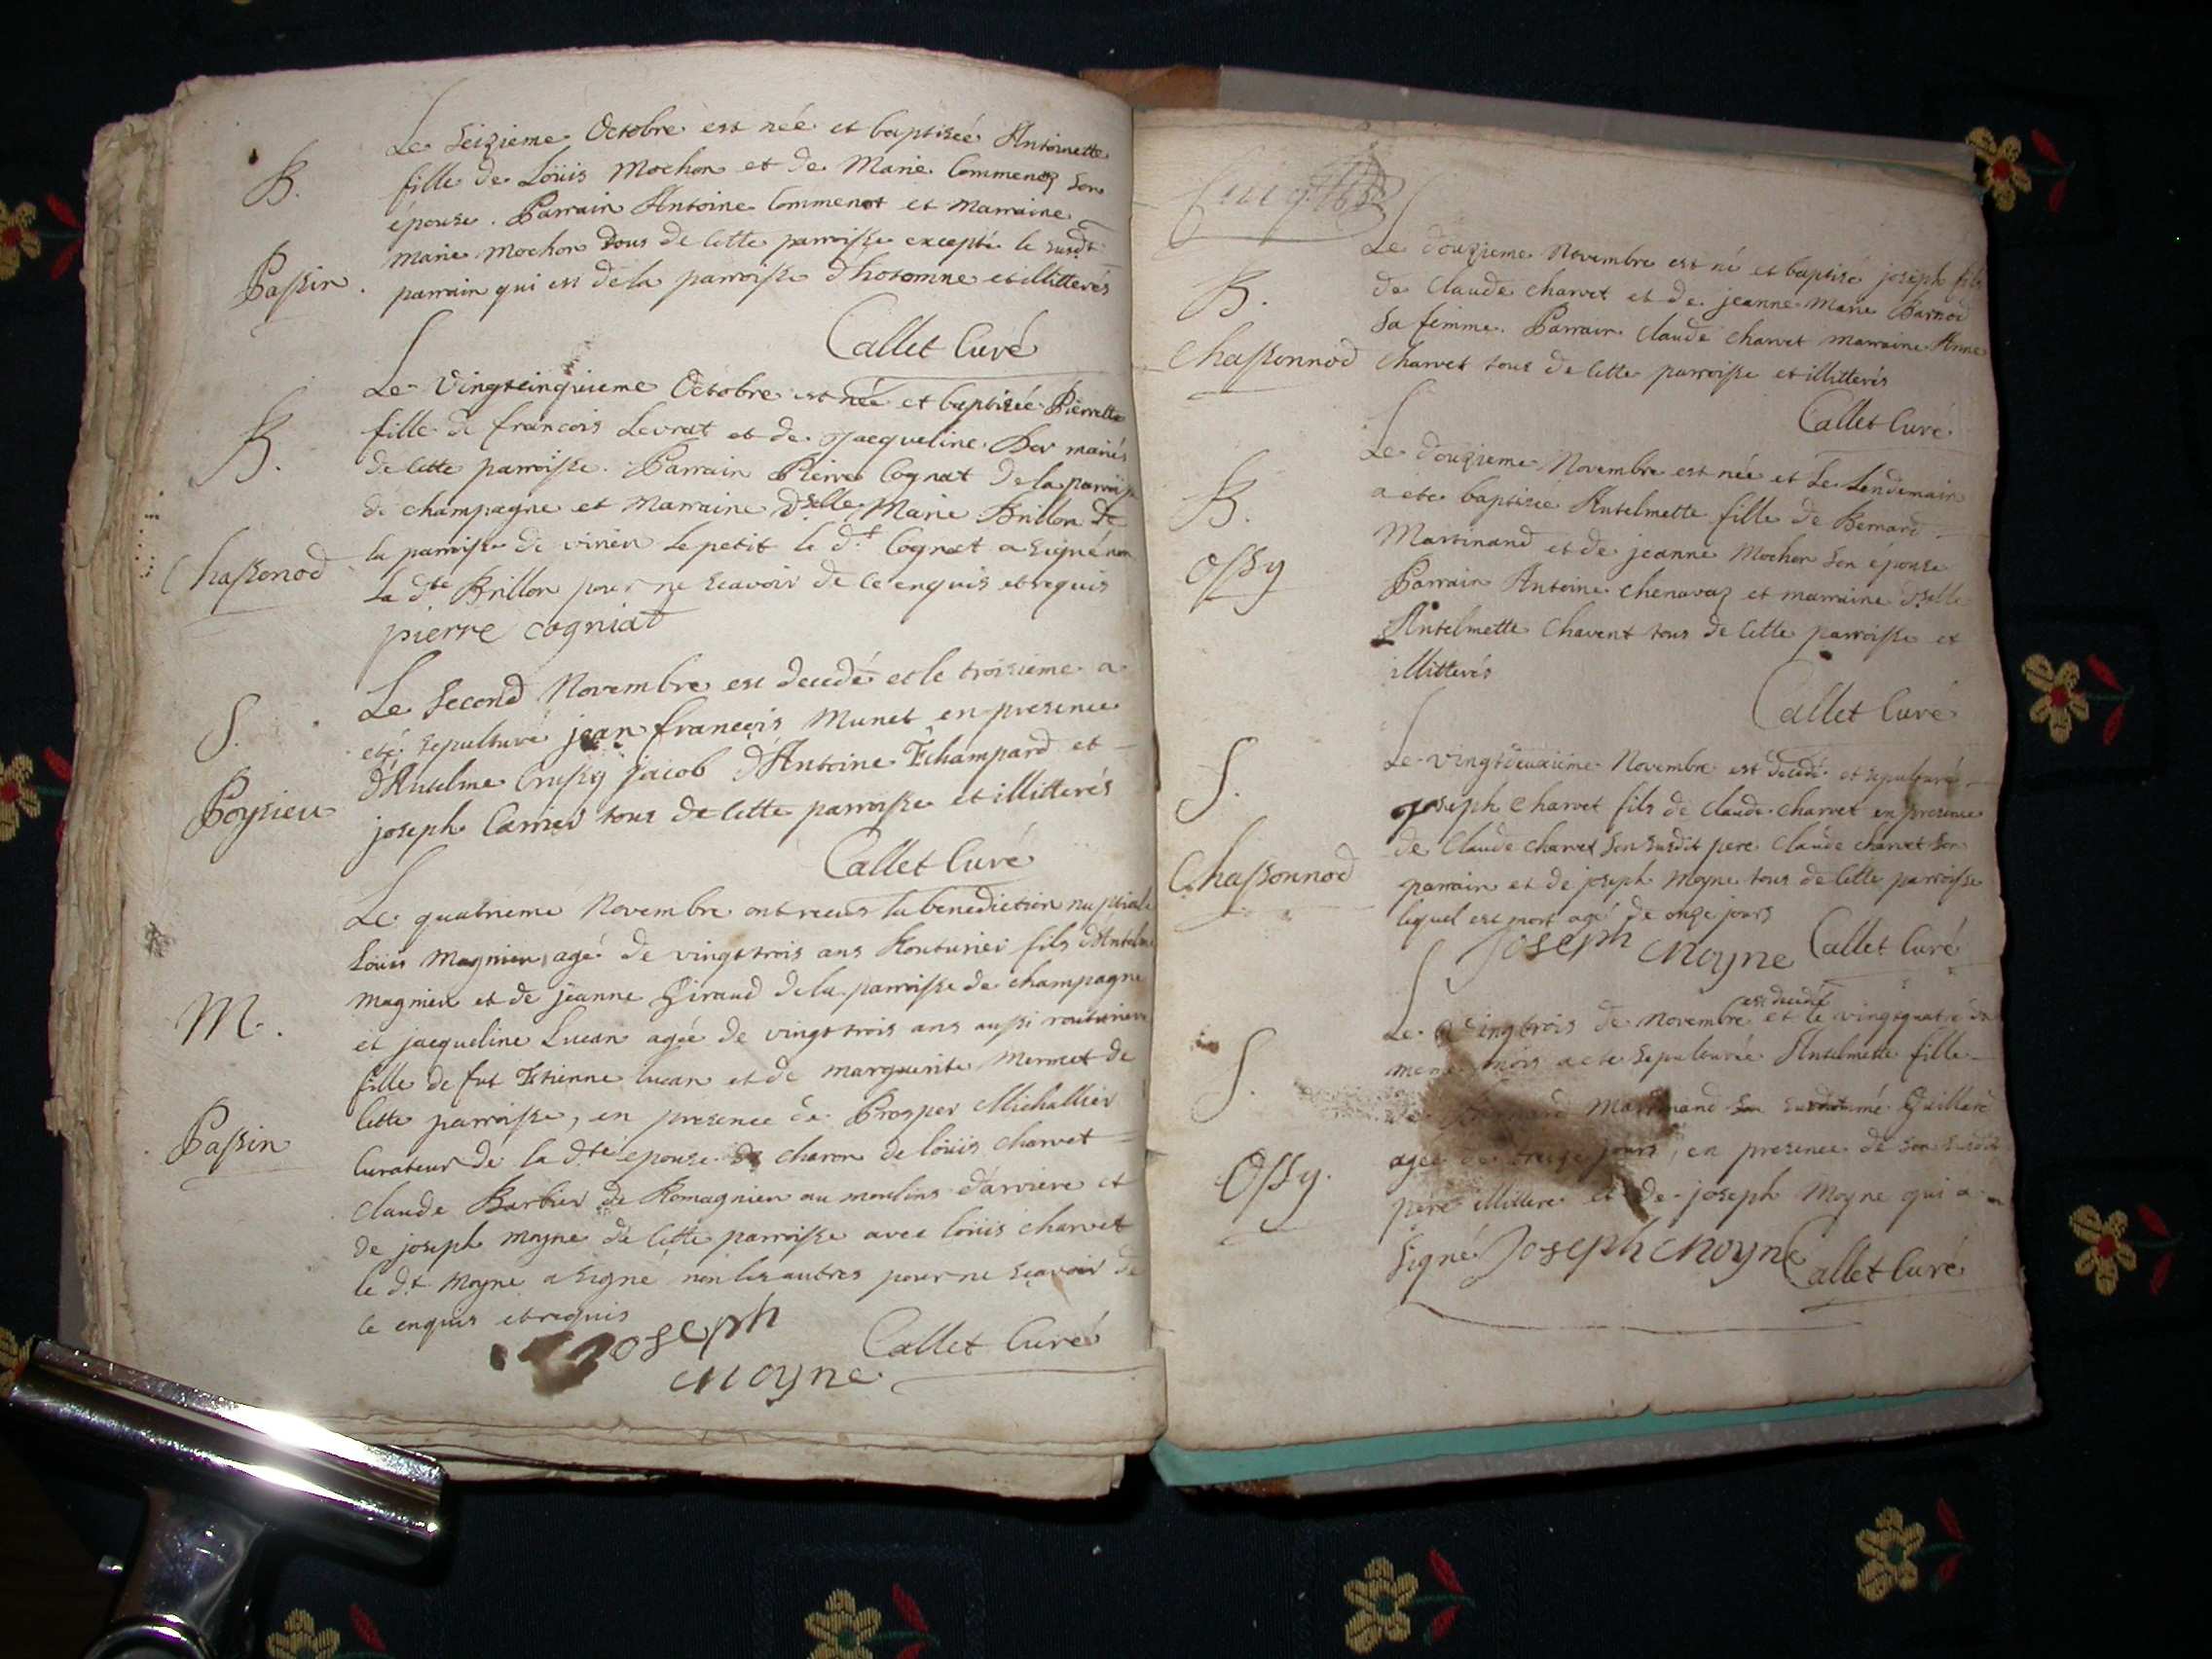 Le Seizieme Octobre est née et baptisée Antoinette
B.
fille de Loüis Mochon et de Marie Commenoz Son
épouse. Parrain Antoine Commenot et Marraine
Marie Mochon Tous de Cette parroisse excepté le susdt
Passin.
parrain qui est de la parroisse d'hotonne et illitterés
Callet Curé
Le Vingtcinquieme Octobre est née et baptisée Pierrette
B.
fille de francois Levrat et de Jacqueline Bor mariés
de Cette parroisse. Parrain Pierre Cognat de la parroisse
de Champagne et Marraine Dselle Marie Brillon de
Chassonod
la parroisse de virieu Le petit le d.t Cognat a Signé non
La d.te Brillon pour ne Scavoir de Ce enquis et requis
pierre cogniat
Le Second Novembre est decedé et le troisieme a
S.
eté sepulturé jean françois Munet en presence
d'Anselme Crussy jacob d'Antoine Echampard et
Poysieu
joseph Carrier tous de Cette parroisse et illitterés
Callet Curé
Le quatrieme Novembre ont recus la benediction nuptiale
Loüis Magnieu agé de vingt trois ans Routurier fils d'Antelme
M.
Magnieu et de jeanne Giraud de la parroisse de champagne
et jacqueline Lucan agée de vingt trois ans aussi routuriere
fille de fut Etienne lucan et de marguerite Mermet de
Passin
Cette parroisse, en presence de Prosper Michallier
Curateur de la d.te epouse de charon de loüis charvet
claude Barbier de Romagnieu au moulins d'arviere et
de joseph moyne de Cette parroisse avec loüis charvet
le d.t Moyne a Signé non les autres pour ne Sçavoir de
Ce enquis et requis
Joseph moyne Callet Curé
Le douzieme Novembre est né et baptisé joseph fils
B.
de Claude charvet et de jeanne Marie Barnod
Sa femme. Parrain Claude charvet marraine Anne
Chassonnod
Charvet tous de Cette parroisse et illitterés
Callet Curé
Le douzieme Novembre est née et Le Lendemain
B.
a ete baptisée Antelmette fille de Bernard
Martinand et de jeanne Mochon Son épouse
Ossy
Parrain Antoine Chenavaz et marraine Dselle
Antelmette Chavent tous de Cette parroisse et
illitterés
Callet Curé
Le vingtdeuxiême Novembre est decedé et sepulturé
S.
joseph Charvet fils de Claude charvet en presence
de Claude charvet Son susdit pere Claude charvet son
Chassonnod
parrain et de joseph Moyne tous de Cette parroisse
lequel est mort agé de onze jours
Joseph moyne Callet Curé
est decedé
Le vingtrois de Novembre et le vingtquatre du
S.
meme mois a ete sepulturée Antelmette fille
de Bernard Martinand Surnommé Guillard
Ossy.
agée de treize jours, en presence de son susdit
pere illitteré et de joseph Moyne qui a
Signé Joseph moyne Callet Curé